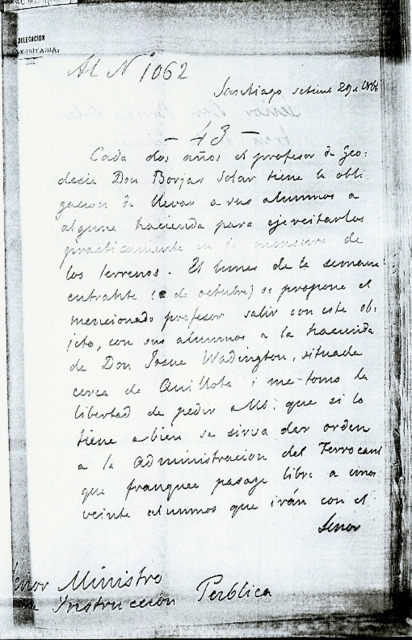 DELEGACION
Al N 1062
Santiago setiembre 29 de
- 43 -
Cada dos años el profesor de Geo-
desia Don Borjas Solar tiene la obli
gacion de llevar a sus alumnos a
alguna hacienda para ejercitarlos
practicamente en la mensura de
los terrenos. El lunes de la semana
entrante ( de octubre) se propone el
mencionado profesor salir con este ob
jeto, con sus alumnos a la hacienda
de Don Josue Wadington, situada
cerca de Quillota i me tomo la
libertad de pedir a US. que si lo
tiene a bien se sirva dar orden
a la Administracion del Ferrocarril
que franquee pasage libre a unos
veinte alumnos que irán con el
Señor
Señor Ministro
Instruccion Publica